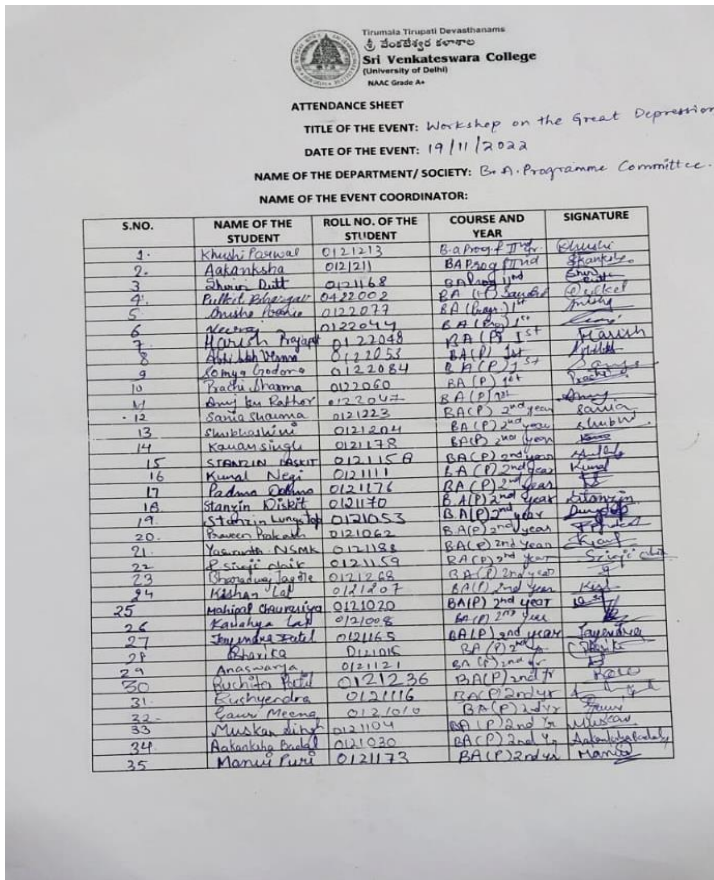 Tirumala Tirupati Devasthanams
శ్రీ వేంకటేశ్వర కళాశాల
Sri Venkateswara College
(University of Delhi)
NAAC Grade A+
ATTENDANCE SHEET
TITLE OF THE EVENT: Workshop on the Great Depression
DATE OF THE EVENT: 19/11/2022
NAME OF THE DEPARTMENT/ SOCIETY: B.A. Programme Committee.
NAME OF THE EVENT COORDINATOR:
S.NO. NAME OF THE STUDENT ROLL NO. OF THE STUDENT COURSE AND YEAR SIGNATURE
1. Khushi Parwal 0121213 B.a Prog. IInd yr. Khushi
2. Aakanksha 0121211 BA Prog IInd
3 Dutt 0121168 BA Prog IInd
4. Pulkit Bhargav 0422002 BA (H)
5 0122077 BA (Prog.) 1st
6 Neeraj 0122044 BA (Prog) 1st
7 Harish Prajapat 0122048 BA(P) 1st Harish
8 0122053 BA(P) 1st
9 Somya Godara 0122084 BA(P) 1st
10 Prachi Sharma 0122060 BA (P) 1st
11 Anuj ku Rathor 0122047 BA(P) 1st
12 Sania Sharma 0121223 BA(P) 2nd year Sania
13 Shubhashini 0121204 BA(P) 2nd year Shubh
14 Karan singh 0121178 BA(P) 2nd year
15 STANZIN LASKIT 0121158 BA(P) 2nd year
16 Kunal Negi 0121111 BA(P) 2nd year Kunal
17 Padma 0121176 BA(P) 2nd year
18 Stanzin Diskit 0121170 BA(P) 2nd year Stanzin
19. Stanzin 0121053 BA(P) 2nd year
20. Praveen Prakash 0121062 BA(P) 2nd year
21. NSMK 0121188 BA(P) 2nd year
22 0121159 BA(P) 2nd year
23 Bharadwaj 0121268 BA(P) 2nd year
24 Kishan Lal 0121207 BA(P) 2nd year
25 Mahipal Chaurasiya 0121020 BA(P) 2nd year
26 Kanahya Lal 0121008 BA(P) 2nd year
27 Jayendra Patel 0121165 BA(P) 2nd year Jayendra
28 Bharka 0121015 BA(P) 2nd yr
29 Anaswarya 0121121 BA(P) 2nd yr
30 Ruchita Patil 0121236 BA(P) 2nd yr
31. Kushyendra 0121116 BA(P) 2nd yr
32 Gaur Meena 0121010 BA(P) 2nd yr
33 Muskan Singh 0121104 BA(P) 2nd Yr Muskan
34 Aakanksha Badal 0121030 BA(P) 2nd Yr
35 Manvi Puri 0121173 BA(P) 2nd yr Manvi